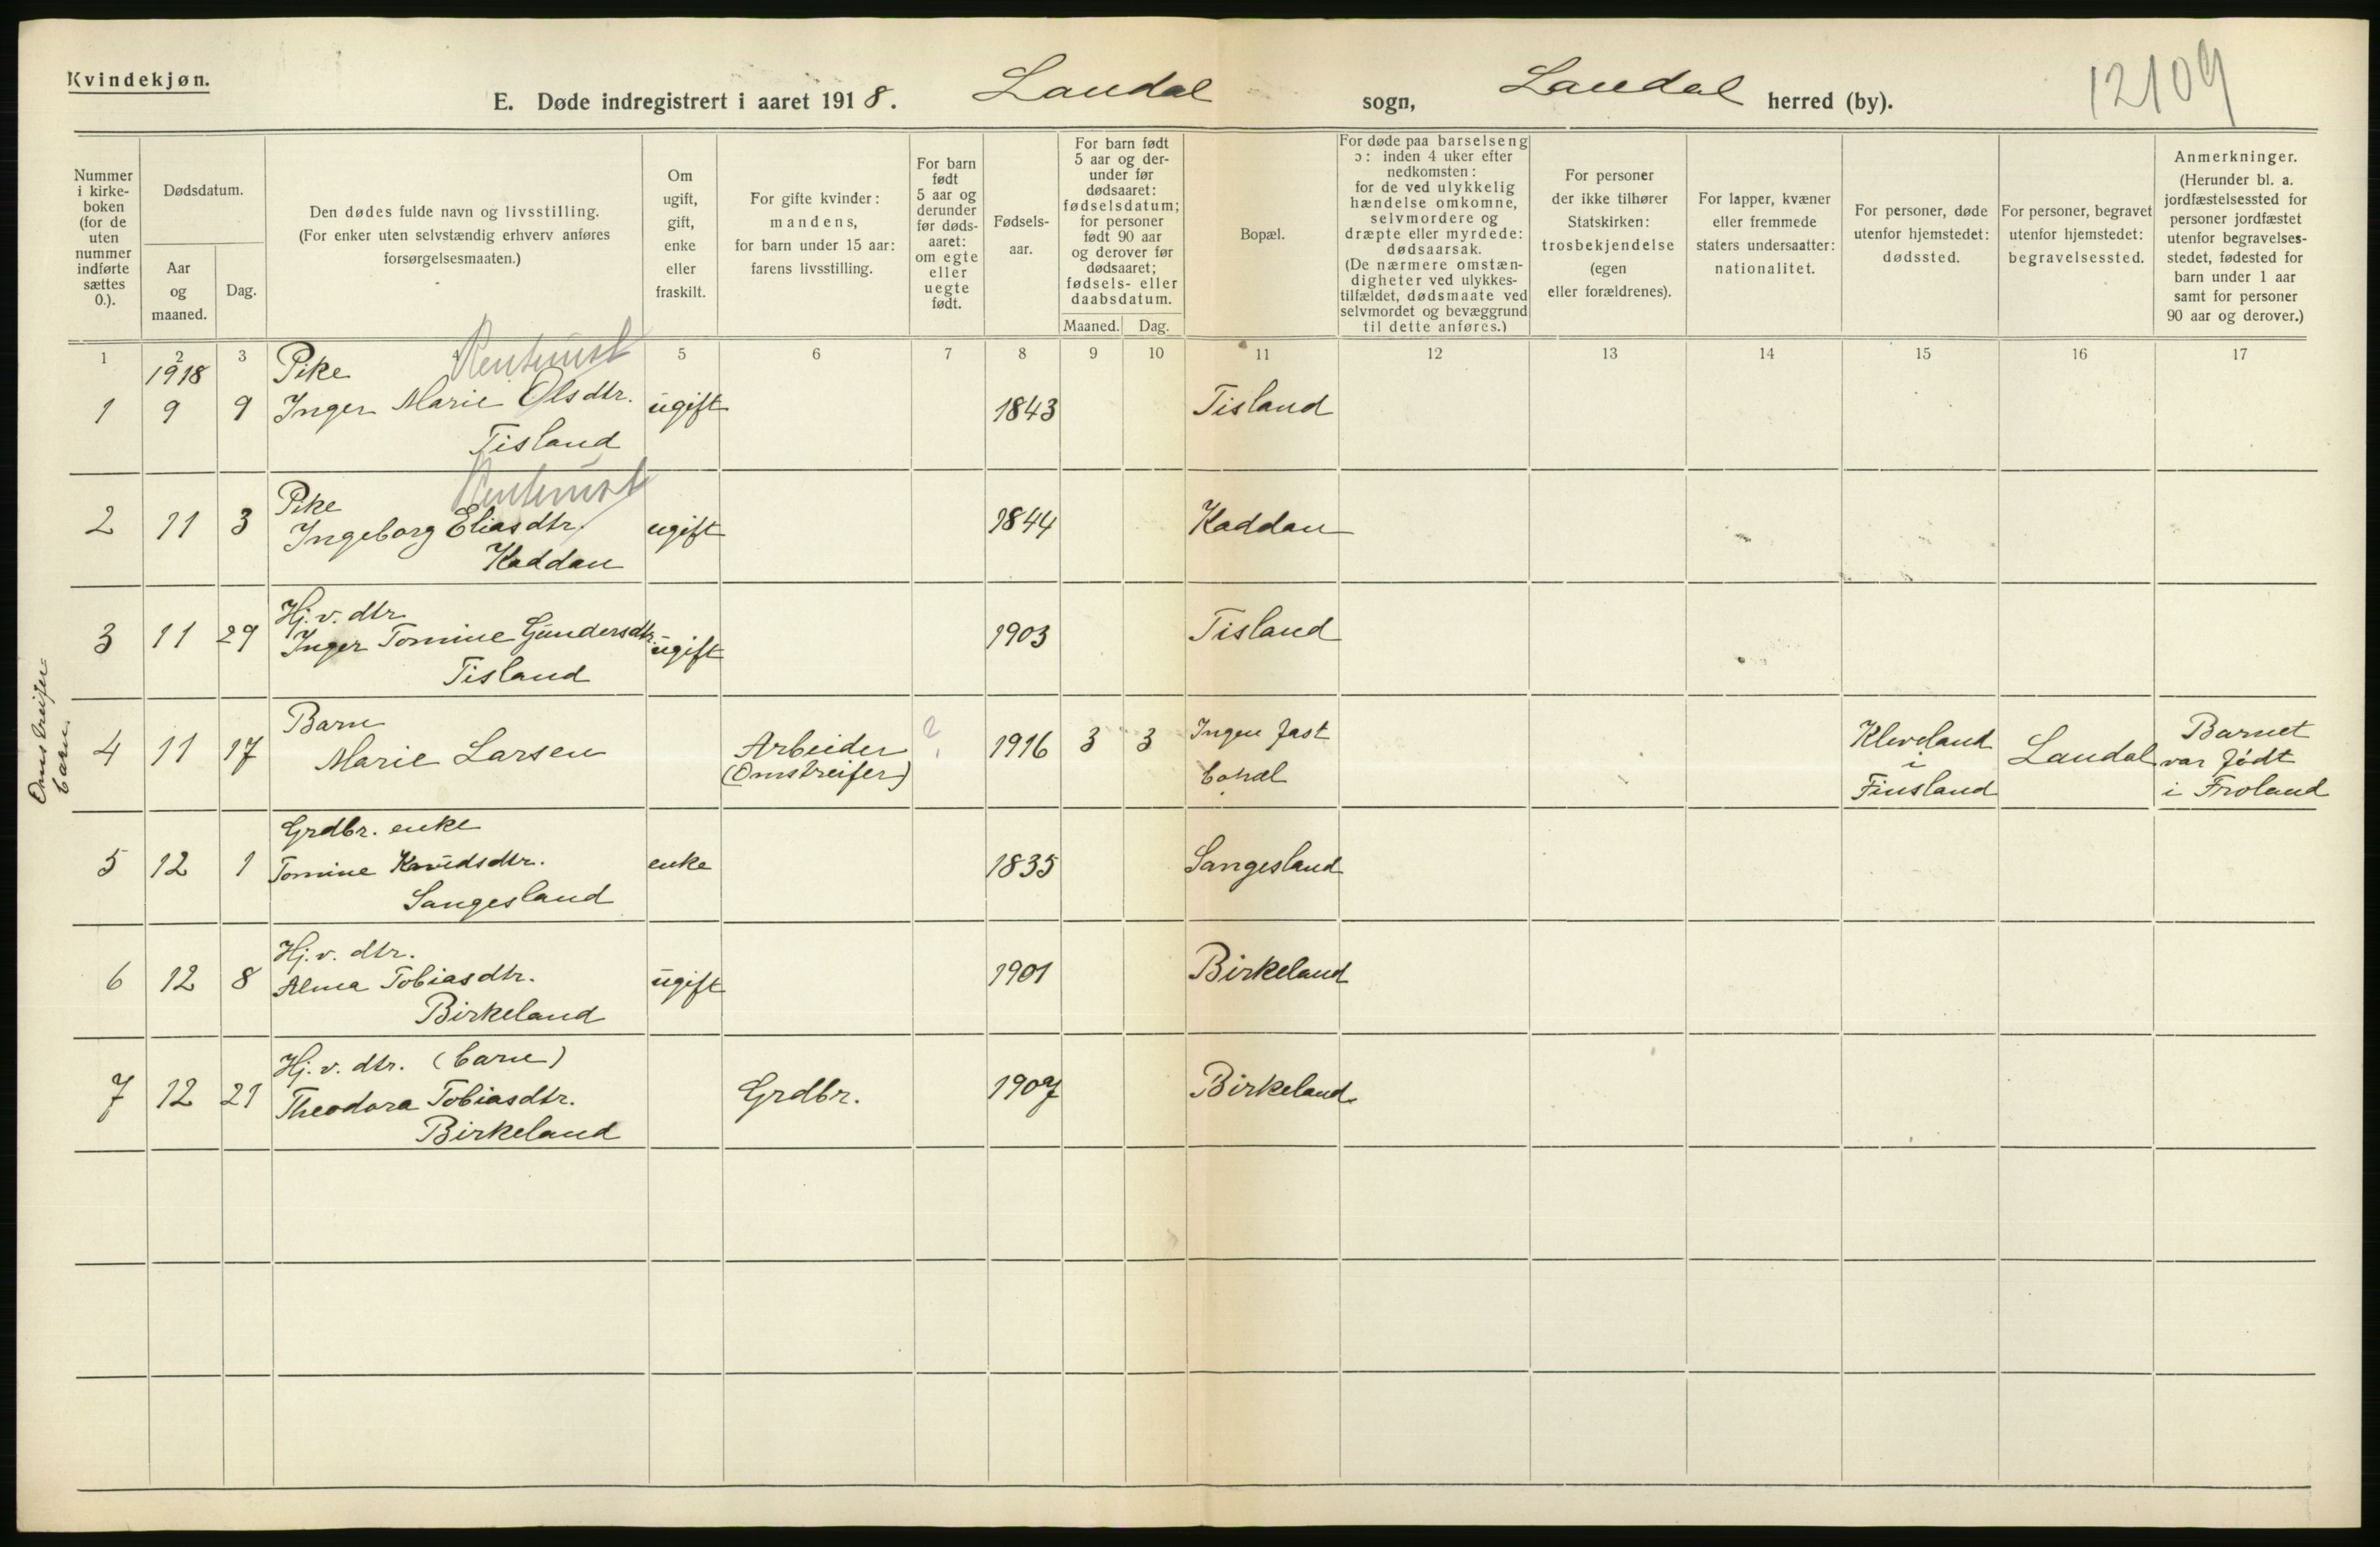 Kvindekjøn.
E. Døde indregistrert i aaret 1918. Laudal sogn, Laudal herred (by).
12109
Nummer i kirkeboken (for de uten nummer indførte sættes 0.).
Dødsdatum.
Aar og maaned.
Dag.
Den dødes fulde navn og livsstilling.
(For enker uten selvstændig erhverv anføres
forsørgelsesmaaten.)
Om ugift, gift, enke eller fraskilt.
For gifte kvinder:
mandens,
for barn under 15 aar:
farens livsstilling.
For barn født 5 aar og derunder før dødsaaret: om egte eller uegte født.
Fødselsaar.
For barn født 5 aar og derunder før dødsaaret: fødselsdatum; for personer født 90 aar og derover før dødsaaret; fødsels- eller daabsdatum.
Maaned. Dag.
Bopæl.
For døde paa barselseng
ɔ: inden 4 uker efter
nedkomsten:
for de ved ulykkelig
hændelse omkomne,
selvmordere og
dræpte eller myrdede:
dødsaarsak.
(De nærmere omstæn-
digheter ved ulykkes-
tilfældet, dødsmaate ved
selvmordet og bevæggrund
til dette anføres.)
For personer
der ikke tilhører
Statskirken:
trosbekjendelse
(egen
eller forældrenes).
For lapper, kvæner
eller fremmede
staters undersaatter:
nationalitet.
For personer, døde
utenfor hjemstedet:
dødssted.
For personer, begravet
utenfor hjemstedet:
begravelsessted.
Anmerkninger.
(Herunder bl. a.
jordfæstelsessted for
personer jordfæstet
utenfor begravelses-
stedet, fødested for
barn under 1 aar
samt for personer
90 aar og derover.)
1 2 3 4 5 6 7 8 9 10 11 12 13 14 15 16 17
1918
Pike
1 9 9 Inger Marie Olsdtr. ugift 1843 Tisland
Tisland
Pike
2 11 3 Ingeborg Eliasdtr. ugift 1844 Kaddan
Kaddan
Hj. v. dtr
3 11 29 Inger Tomine Gundersdtr. ugift 1903 Tisland
Tisland
Omstreifer-
barn
Barn
4 11 17 Marie Larsen Arbeider (Omstreifer) ? 1916 3 3 Ingen fast bopæl Kleveland i Finsland Laudal Barnet var født i Froland
Grdbr. enke
5 12 1 Tomine Knudsdtr. enke 1835 Sangesland
Sangesland
Hj. v. dtr.
6 12 8 Alma Tobiasdtr. ugift 1901 Birkeland
Birkeland
Hj. v. dtr. (barn)
7 12 21 Theodora Tobiasdtr. Grdbr. 1907 Birkeland
Birkeland